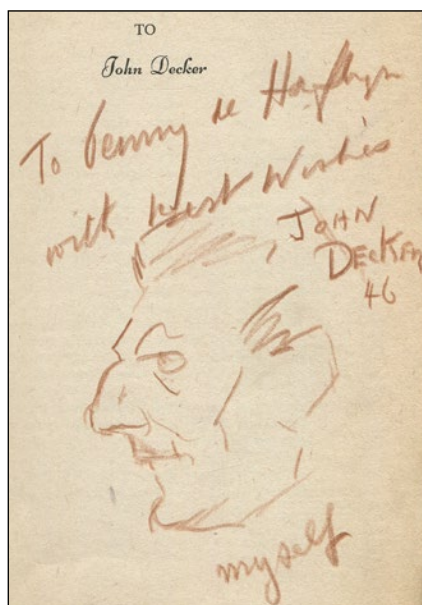 TO
John Decker
To Penny de
with best Wishes
JOHN
DECKER
46
myself